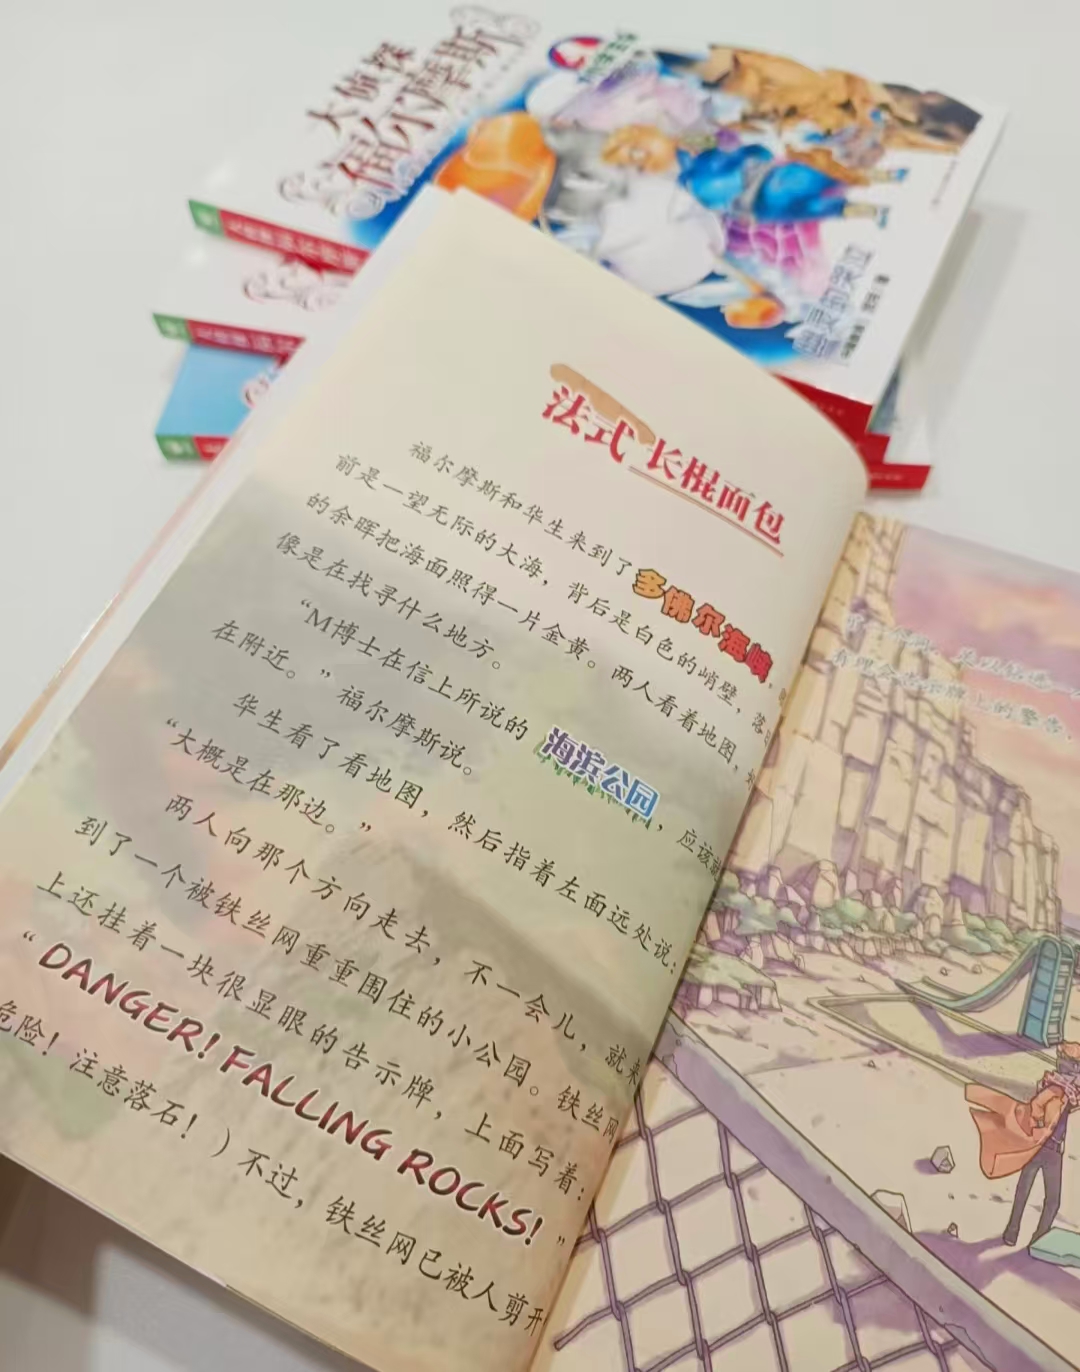 大侦探
福尔摩斯
法式长棍面包
福尔摩斯和华生来到了多佛尔海峡，
前是一望无际的大海，背后是白色的峭壁，落
的余晖把海面照得一片金黄。两人看着地图，
像是在找寻什么地方。
“M博士在信上所说的海滨公园，应该就
在附近。”福尔摩斯说。
华生看了看地图，然后指着左面远处说：
“大概是在那边。”
两人向那个方向走去，不一会儿，就来
到了一个被铁丝网重重围住的小公园。铁丝网
上还挂着一块很显眼的告示牌，上面写着：
“DANGER! FALLING ROCKS!”
危险！注意落石！）不过，铁丝网已被人剪
有理会告示牌上的警告，